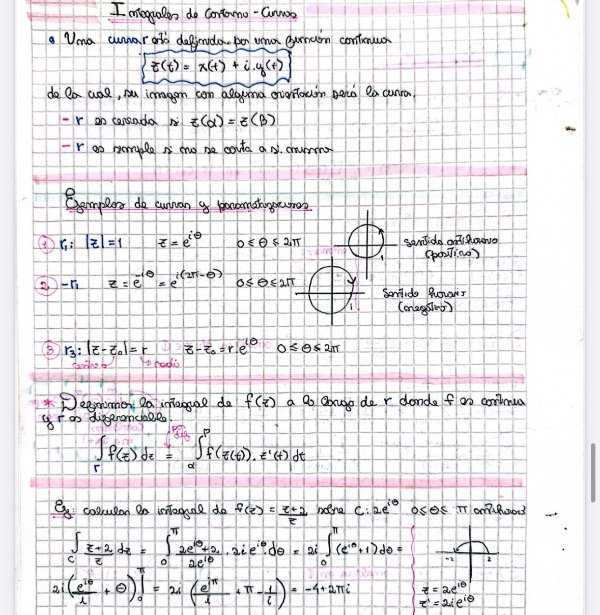 Integrales de Contorno - Curvas
• Una curva r está definida por una función continua
z(t) = x(t) + i.y(t)
de la cual, su imagen con alguna orientación será la curva.
- r es cerrada si z(α) = z(β)
- r es simple si no se corta a si misma
Ejemplos de curvas y parametrizaciones
① r₁: |z|=1 z = e^{iθ} 0 ≤ θ ≤ 2π 1 sentido antihorario
(positivo)
② -r₁ z = e^{-iθ} = e^{i(2π-θ)} 0 ≤ θ ≤ 2π 1 sentido horario
(negativo)
③ r₃: |z-z₀| = r z-z₀ = r.e^{iθ} 0 ≤ θ ≤ 2π
centro radio
* Definimos la integral de f(z) a lo largo de r donde f es continua
y r es diferenciable
∫_r f(z) dz = ∫_α^β f(z(t)). z'(t) dt
Ej: calcular la integral de f(z) = z+2/z sobre C: 2e^{iθ} 0≤θ≤ π antihorario
∫_C z+2/z dz = ∫_0^π 2e^{iθ}+2/2e^{iθ} . 2ie^{iθ}.dθ = 2i ∫_0^π (e^{iθ}+1)dθ =
-2 2
2i(e^{iθ}/i + θ)|_0^π = 2i (e^{iπ}/i + π - 1/i) = -4+2πi
z = 2e^{iθ}
z' = 2ie^{iθ}